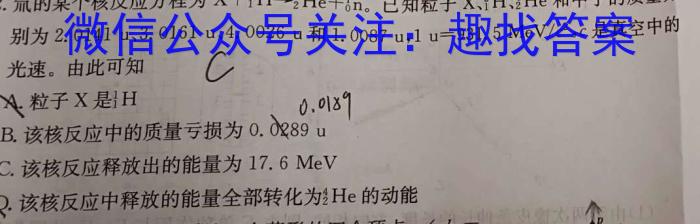 氚的某个核反应方程为X+³₁H→⁴₂He+¹₀n。已知粒子X、³₁H、⁴₂He和中子的质量
别为2.0141 u、3.0161 u、4.0026 u和1.0087 u,1 u=931.5 MeV/c²,c是真空中的
微信公众号关注：趣找答案
光速。由此可知
C
A. 粒子X是¹₁H
0.0189
B. 该核反应中的质量亏损为0.0289 u
C. 该核反应释放出的能量为17.6 MeV
D. 该核反应中释放的能量全部转化为⁴₂He的动能